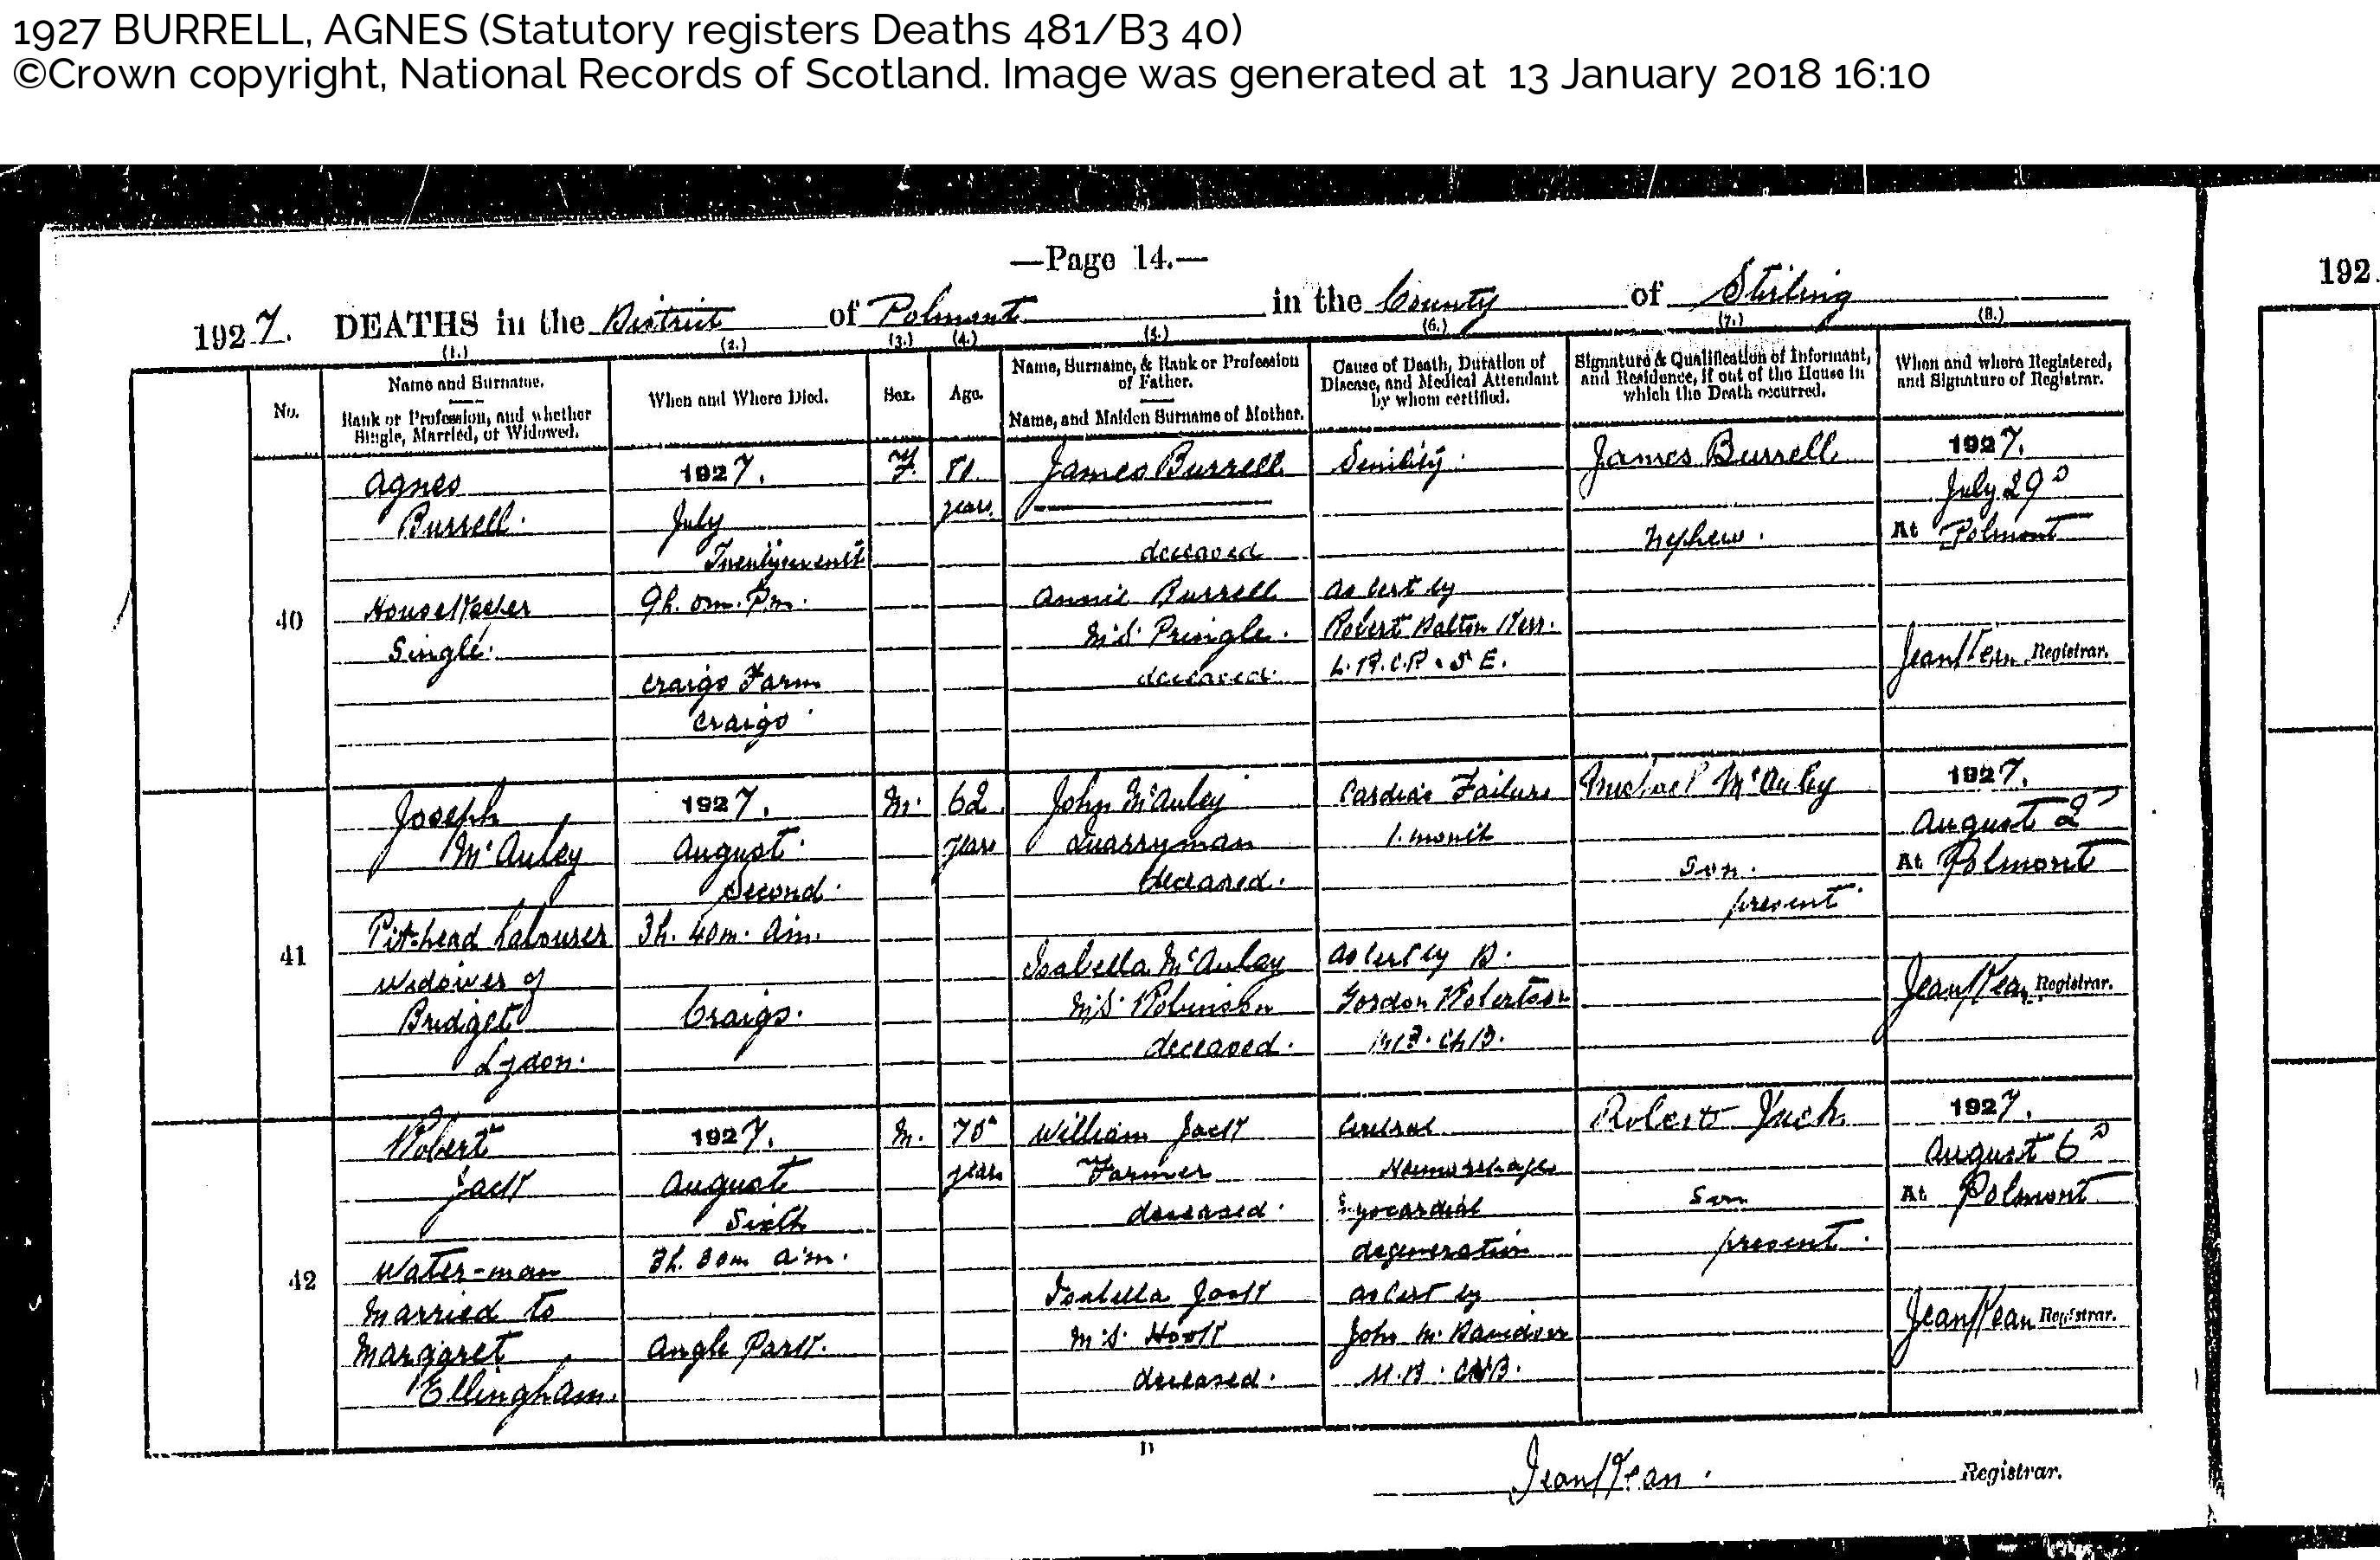 1927 BURRELL, AGNES (Statutory registers Deaths 481/B3 40)
©Crown copyright, National Records of Scotland. Image was generated at 13 January 2018 16:10
—Page 14.—
192
1927. DEATHS in the District of Polmont in the County of Stirling
(1.) (2.) (3.) (4.) (5.) (6.) (7.) (8.)
No.
Name and Surname.
Rank or Profession, and whether
Single, Married, or Widowed.
When and Where Died.
Sex.
Age.
Name, Surname, & Rank or Profession
of Father.
Name, and Maiden Surname of Mother.
Cause of Death, Duration of
Disease, and Medical Attendant
by whom certified.
Signature & Qualification of Informant,
and Residence, if out of the House in
which the Death occurred.
When and where Registered,
and Signature of Registrar.
40
Agnes
Burrell.
Housekeeper
Single.
1927.
July
Twentyseventh
9h. 0m. P.m.
Craigs Farm
Craigs.
F.
81
years
James Burrell
deceased
Annie Burrell
M.S. Pringle.
deceased.
Senility.
As cert by
Robert Dalton Kerr.
L.R.C.P. & S E.
James Burrell
Nephew.
1927.
July 29
At Polmont
Jean Kean Registrar.
41
Joseph
McAuley
Pit-head Labourer
Widower of
Bridget
Lydon.
1927.
August
Second.
3h. 40m. a.m.
Craigs.
M.
62
years
John McAuley
Quarryman
deceased.
Isabella McAuley
M.S. Robinson
deceased.
Cardiac Failure
1. month
As cert by
Gordon Robertson
M.B. Ch.B.
Michael McAuley
Son.
present.
1927.
August 2
At Polmont
Jean Kean Registrar.
42
Robert
Jack
Water-man
Married to
Margaret
Ellingham.
1927.
August
Sixth
3h. 30m a.m.
Angle Park.
M.
70
years
William Jack
Farmer
deceased.
Isabella Jack
M.S. Hook
deceased.
Cerebral
Haemorrhage
Myocardial
degeneration
As cert by
John M. Davidson
M.B. Ch.B.
Robert Jack
Son
present.
1927.
August 6
At Polmont
Jean Kean Registrar.
D
Jean Kean. Registrar.